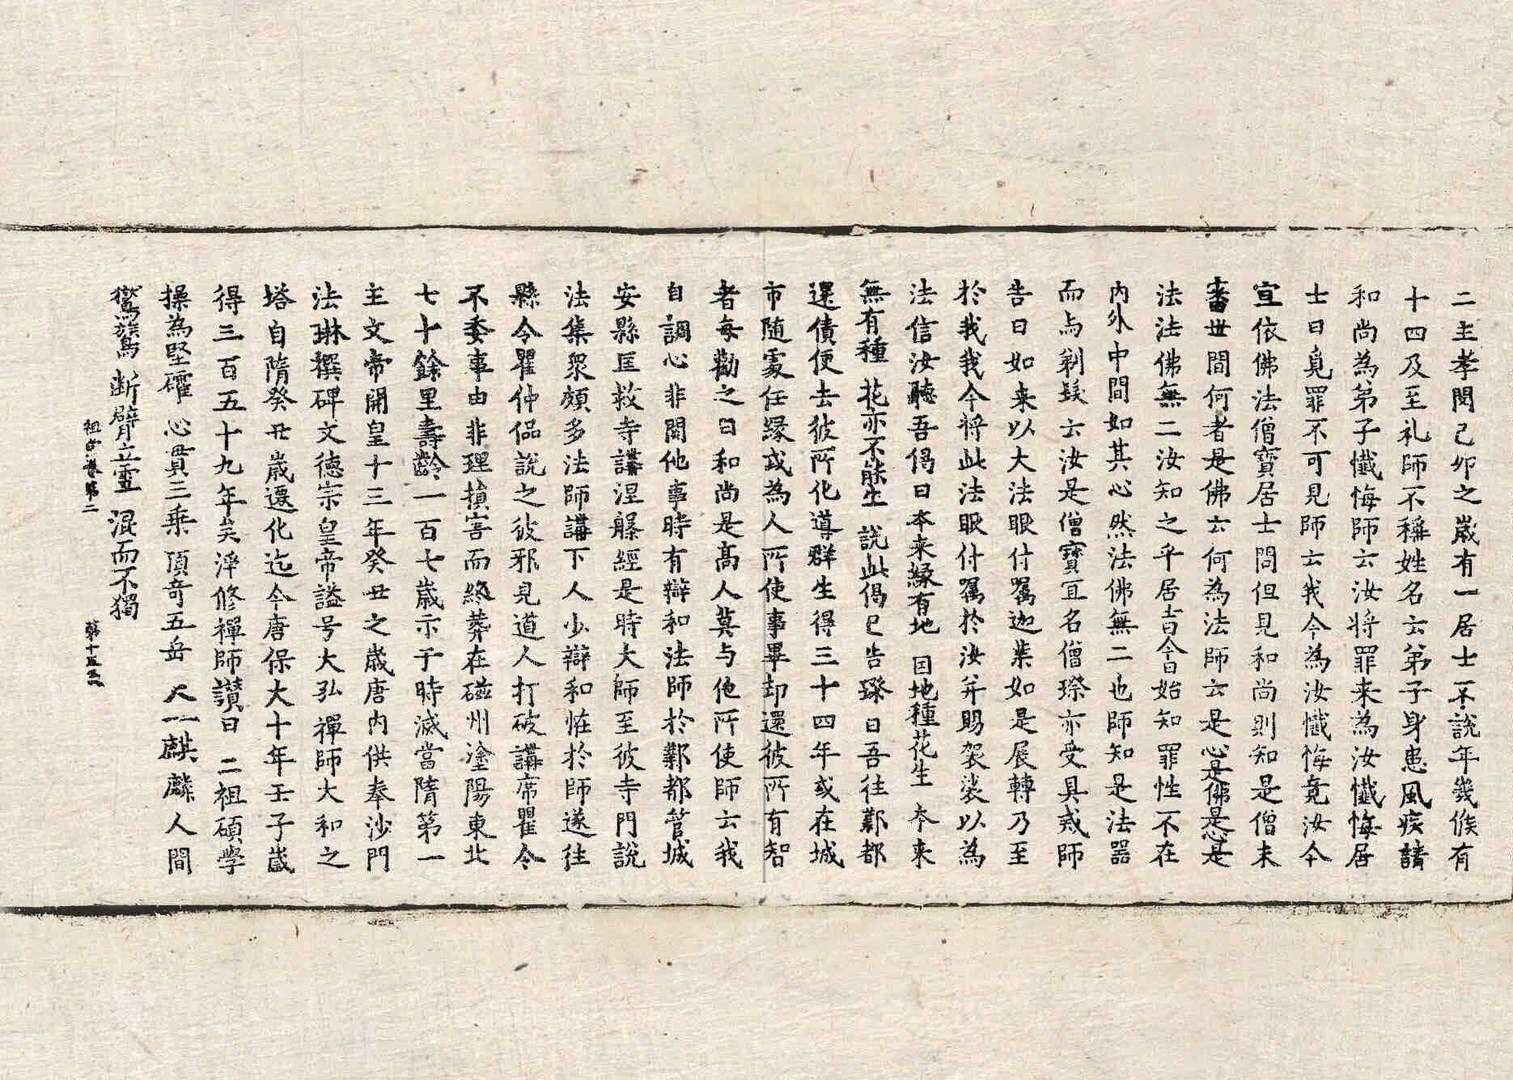 二主孝閔己卯之歲有一居士不說年幾候有
十四及至礼師不稱姓名云弟子身患風疾請
和尚為弟子懺悔師云汝将罪来為汝懺悔居
士曰覓罪不可見師云我今為汝懺悔竟汝今
宜依佛法僧寶居士問但見和尚則知是僧未
審世間何者是佛云何為法師云是心是佛是心是
法法佛無二汝知之乎居士曰今日始知罪性不在
内外中間如其心然法佛無二也師知是法器
而与剃髮云汝是僧寶宜名僧璨亦受具戒師
告曰如来以大法眼付囑迦葉如是展轉乃至
於我我今将此法眼付囑於汝并賜袈裟以為
法信汝聽吾偈曰本来緣有地 因地種花生 本来
無有種 花亦不能生 說此偈已告璨曰吾往鄴都
還債便去彼所化導群生得三十四年或在城
市随處任緣或為人所使事畢却還彼所有智
者每勸之曰和尚是高人莫与他所使師云我
自調心非關他事時有辯和法師於鄴都管城
安縣匡救寺講涅槃經是時大師至彼寺門說
法集眾頗多法師講下人少辯和恠於師遂往
縣令瞿仲侃說之彼邪見道人打破講席瞿令
不委事由非理損害而終葬在磁州塗陽東北
七十餘里壽齡一百七歲示于時滅當隋第一
主文帝開皇十三年癸丑之歲唐内供奉沙門
法琳撰碑文德宗皇帝謚号大弘禪師大和之
塔自隋癸丑歲遷化迄今唐保大十年壬子歲
得三百五十九年矣淨修禪師讚曰 二祖碩學
操為堅確 心貫三乘 頂奇五岳 天一麒麟 人間
鸑鷟 斷臂立雪 混而不獨
祖堂卷第二 第十五